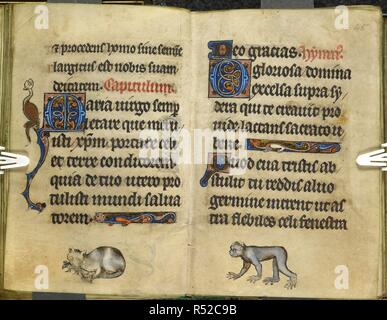 et procedens homo sine semine
largitus est nobis suam
deitatem. Capitulum.
Maria uirgo semp
letare que meru
isti xpm portare celi
et terre conditorem
quia de tuo utero pro
tulisti mundi salua
torem.
Deo gracias. Hymn
O gloriosa domina
excelsa supra sy
dera qui te creauit pro
uide lactans sacrato u
bere.
Quod eua tristis ab
stulit tu reddis almo
germine intrent ut as
tra flebiles celi fenestra
alamy
R52C9B